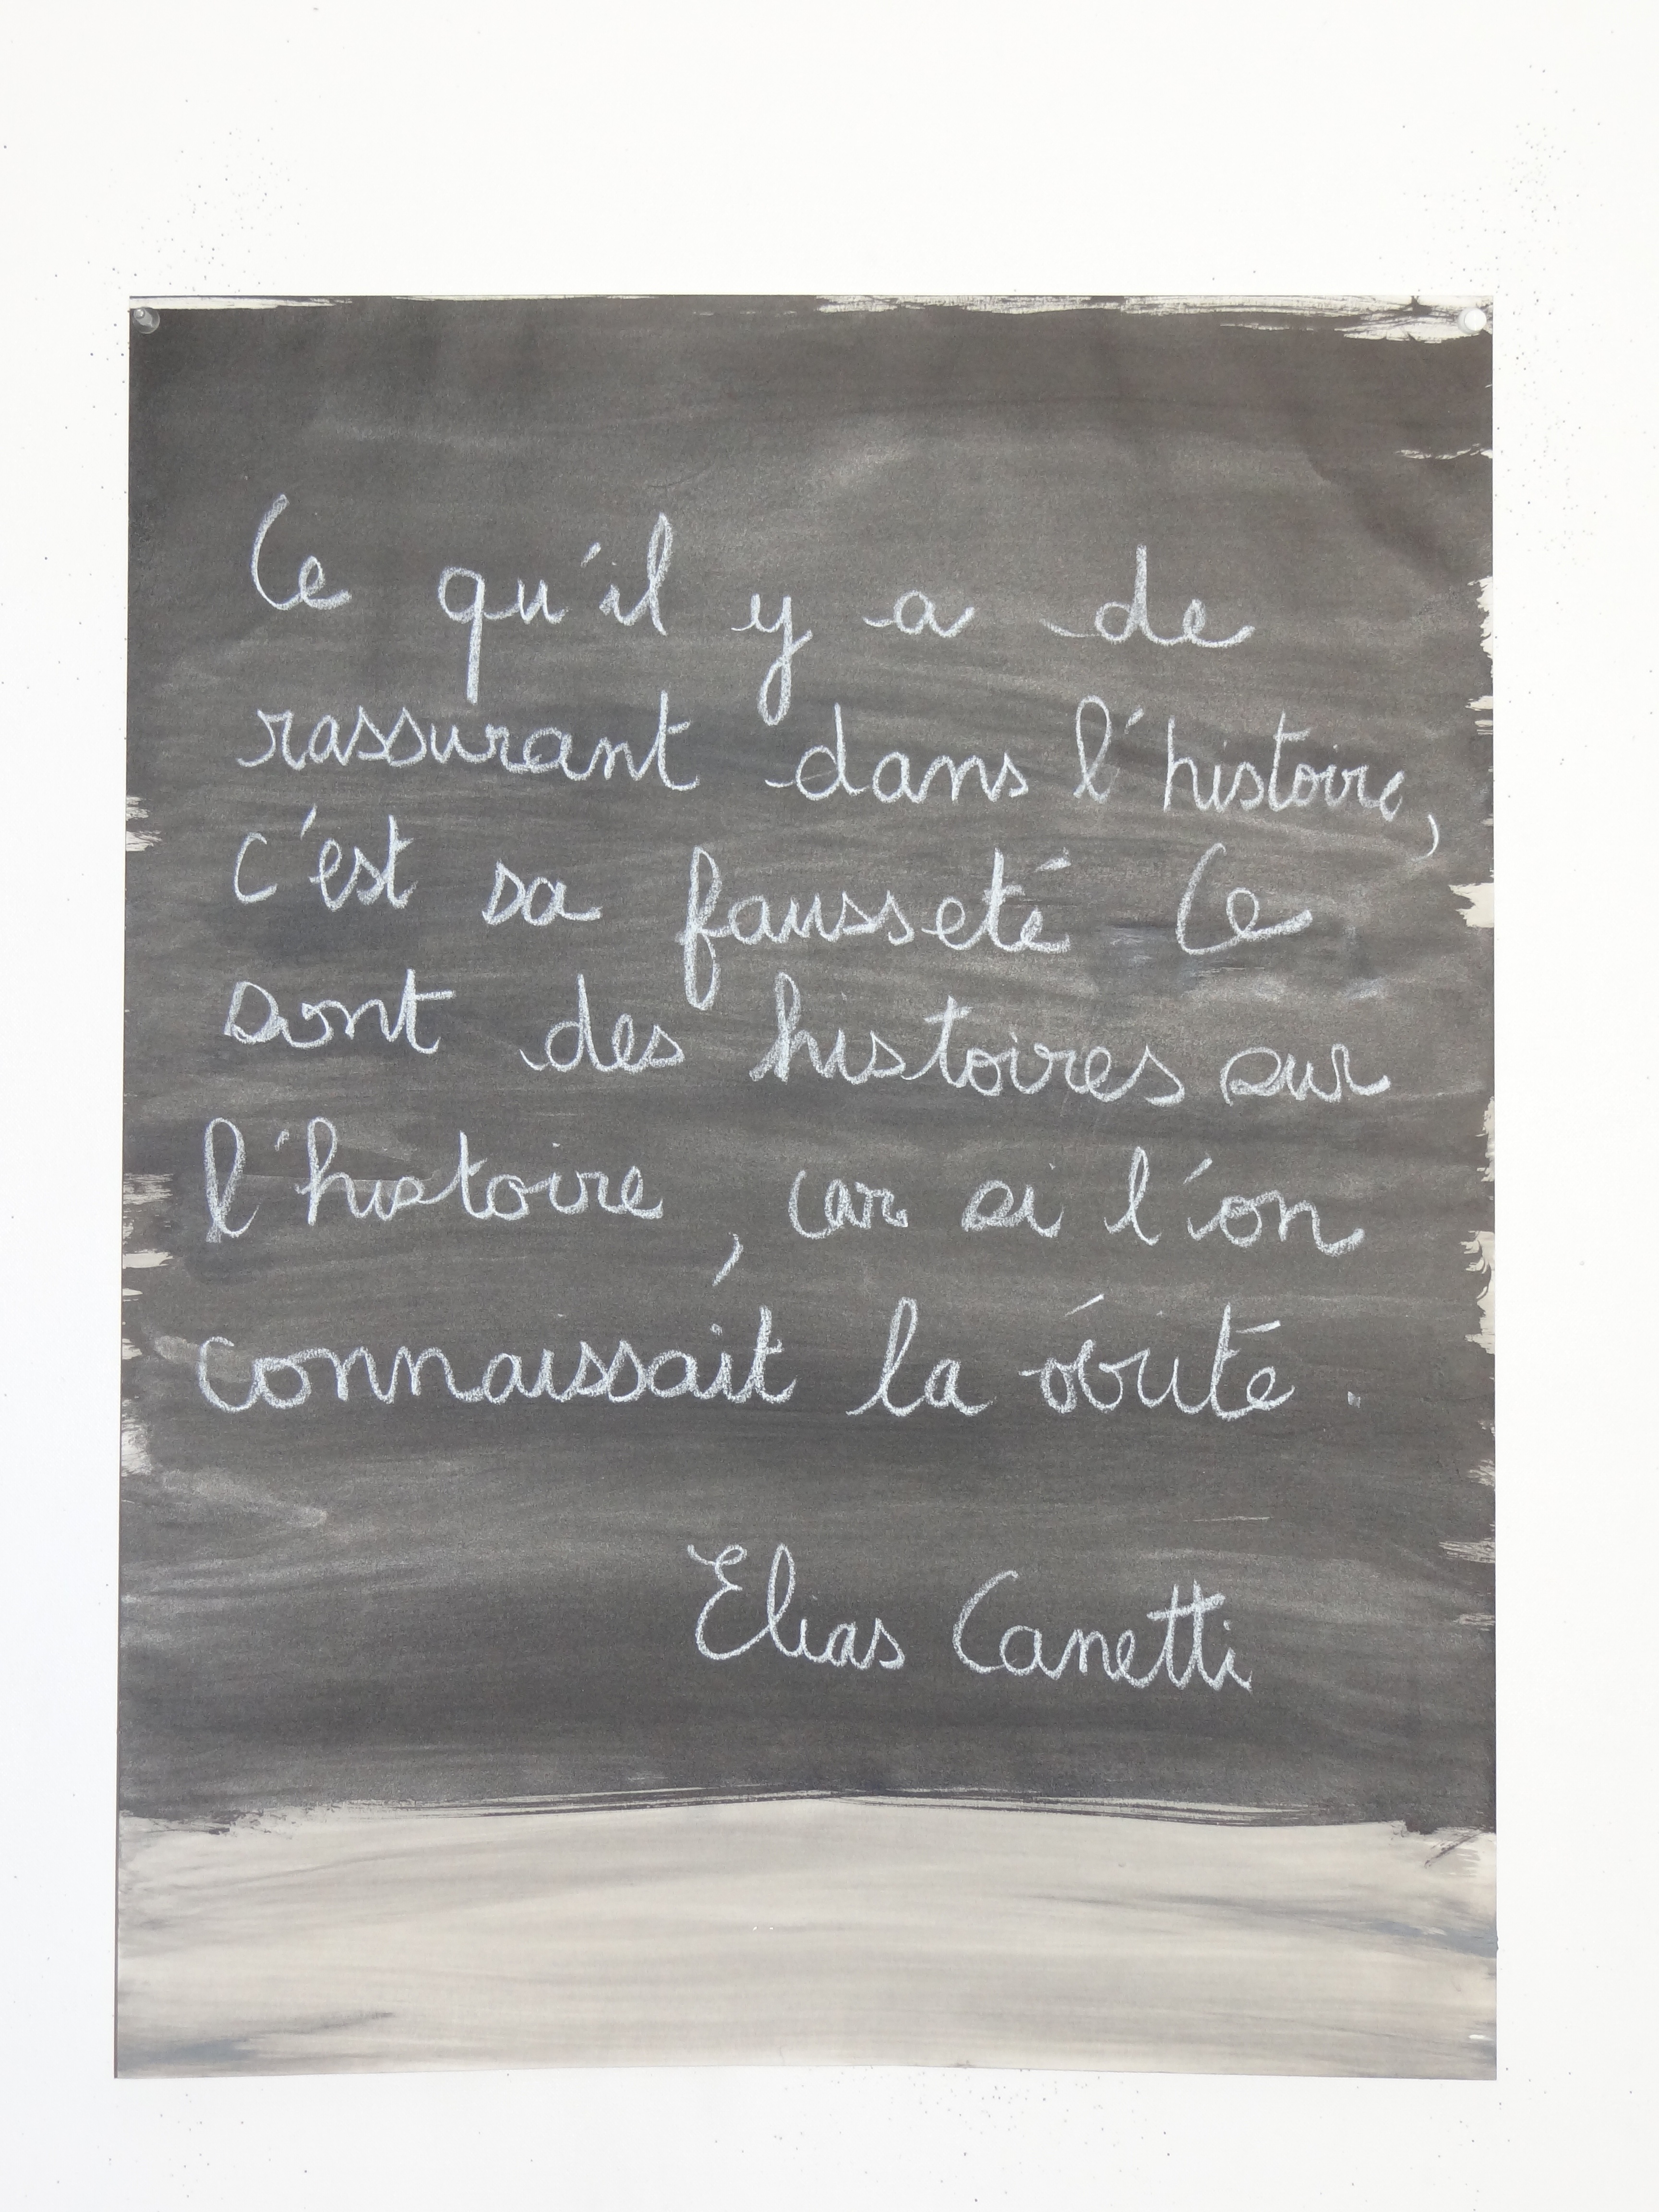 Ce qu'il y a de
rassurant dans l'histoire,
c'est sa fausseté Ce
sont des histoires sur
l'histoire, car si l'on
connaissait la vérité.
Elias Canetti